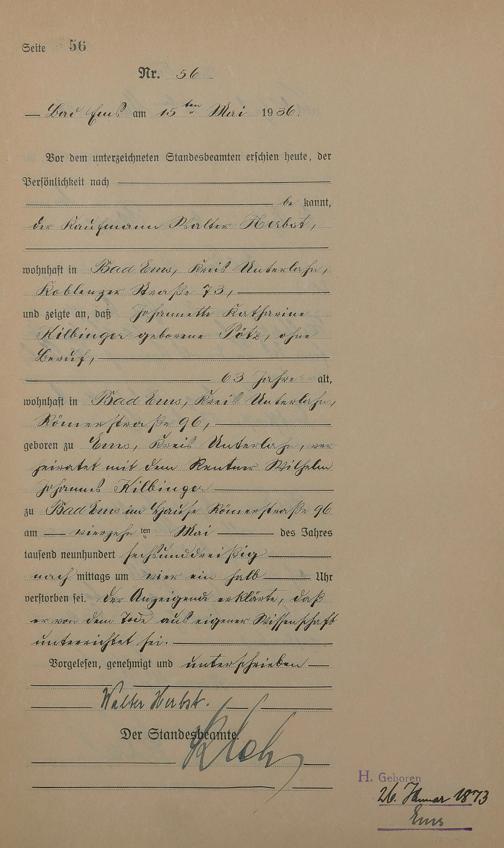 Seite 56
Nr. 56
Bad Ems am 15ten Mai 1936.
Vor dem unterzeichneten Standesbeamten erschien heute, der
Persönlichkeit nach
be kannt,
der Kaufmann Walter Herbst,
wohnhaft in Bad Ems, Kreis Unterlahn,
Koblenzer Straße 73,
und zeigte an, daß Johannette Katharine
Hilbinger geborene Pötz, ohne
Beruf,
63 Jahre alt,
wohnhaft in Bad Ems, Kreis Unterlahn,
Römerstraße 96,
geboren zu Ems, Kreis Unterlahn, ver
heiratet mit dem Rentner Wilhelm
Johannes Hilbinger
zu Bad Ems im Hause Römerstraße 96
am vierzehnten Mai des Jahres
tausend neunhundert sechsunddreißig
nach mittags um vier ein halb Uhr
verstorben sei. Der Anzeigende erklärte, daß
er von dem Tode aus eigener Wissenschaft
unterrichtet sei.
Vorgelesen, genehmigt und unterschrieben
Walter Herbst.
Der Standesbeamte.
H. Geboren
26. Januar 1873
Ems